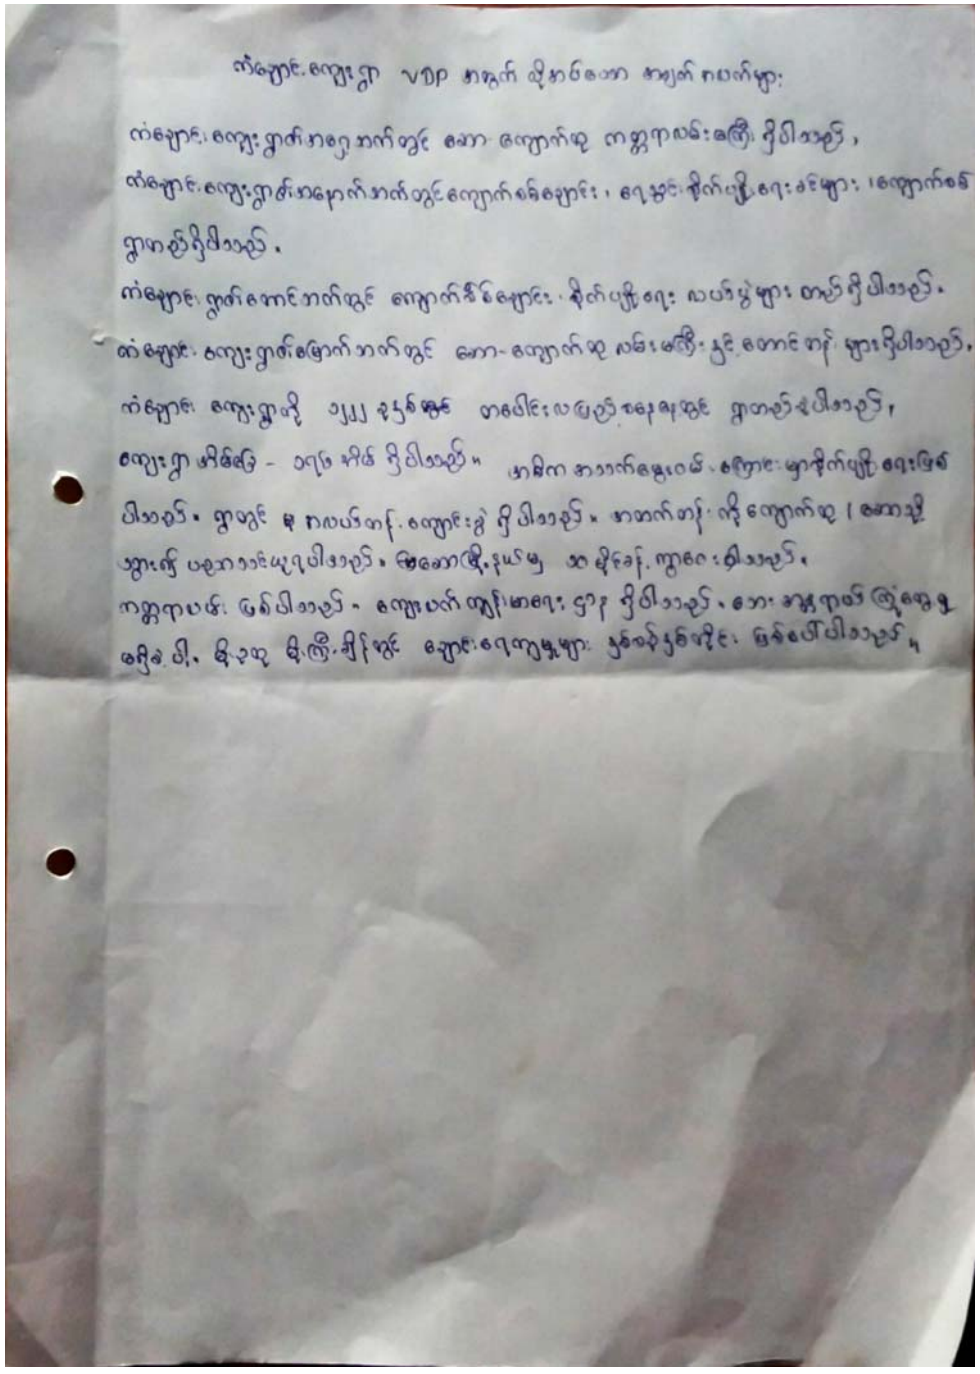 ကံချောင်းကျေးရွာ VDP အတွက် လိုအပ်သော အချက်အလက်များ
ကံချောင်းကျေးရွာ၏အရှေ့ဘက်တွင် ဆော-ကျောက်ထု ကတ္တရာလမ်းမကြီး ရှိပါသည်။
ကံချောင်းကျေးရွာ၏အနောက်ဘက်တွင်ကျောက်စစ်ချောင်း၊ ရေသွင်းစိုက်ပျိုးရေးခင်းများ၊ ကျောက်စစ်
ရွာတည်ရှိပါသည်။
ကံချောင်းရွာ၏တောင်ဘက်တွင် ကျောက်စစ်ချောင်း၊ စိုက်ပျိုးရေး လယ်ကွဲများ တည်ရှိပါသည်။
ကံချောင်းကျေးရွာ၏မြောက်ဘက်တွင် ဆော-ကျောက်ထု လမ်းမကြီးနှင့် တောင်တန်းများရှိပါသည်။
ကံချောင်း ကျေးရွာကို ၁၂၂၂ ခုနှစ်တွင် တပေါင်းလပြည့်နေ့တွင် ရွာတည်ခဲ့ပါသည်။
ကျေးရွာအိမ်ခြေ - အိမ် ရှိပါသည်။ အဓိကအသက်မွေးဝမ်းကြောင်းမှာစိုက်ပျိုးရေးဖြစ်
ပါသည်။ ရွာတွင် မူ အလယ်တန်းကျောင်းခွဲ ရှိပါသည်။ အထက်တန်းကို ကျောက်ထု / ဆောသို့
သွား၍ ပညာသင်ယူရပါသည်။ ဆောမြို့နယ်မှ မိုင်ခန့်ကွာဝေးပါသည်။
ကတ္တရာလမ်း ဖြစ်ပါသည်။ ကျေးလက်ကျန်းမာရေးဌာန ရှိပါသည်။ ဘေးအန္တရာယ် ကြုံတွေ့မှု
မရှိခဲ့ပါ။ မိုးရာသီ မိုးကြီးချိန်တွင် ချောင်းရေကျမှုများ နှစ်စဉ်နှစ်တိုင်း ဖြစ်ပေါ်ပါသည်။